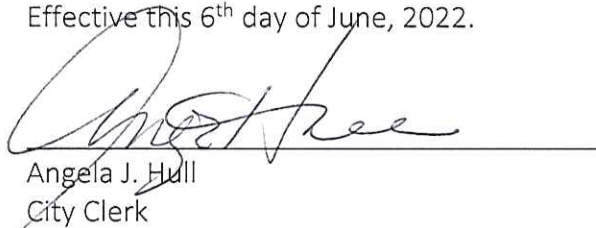 Effective this 6th day of June, 2022.
Angela J. Hull
City Clerk